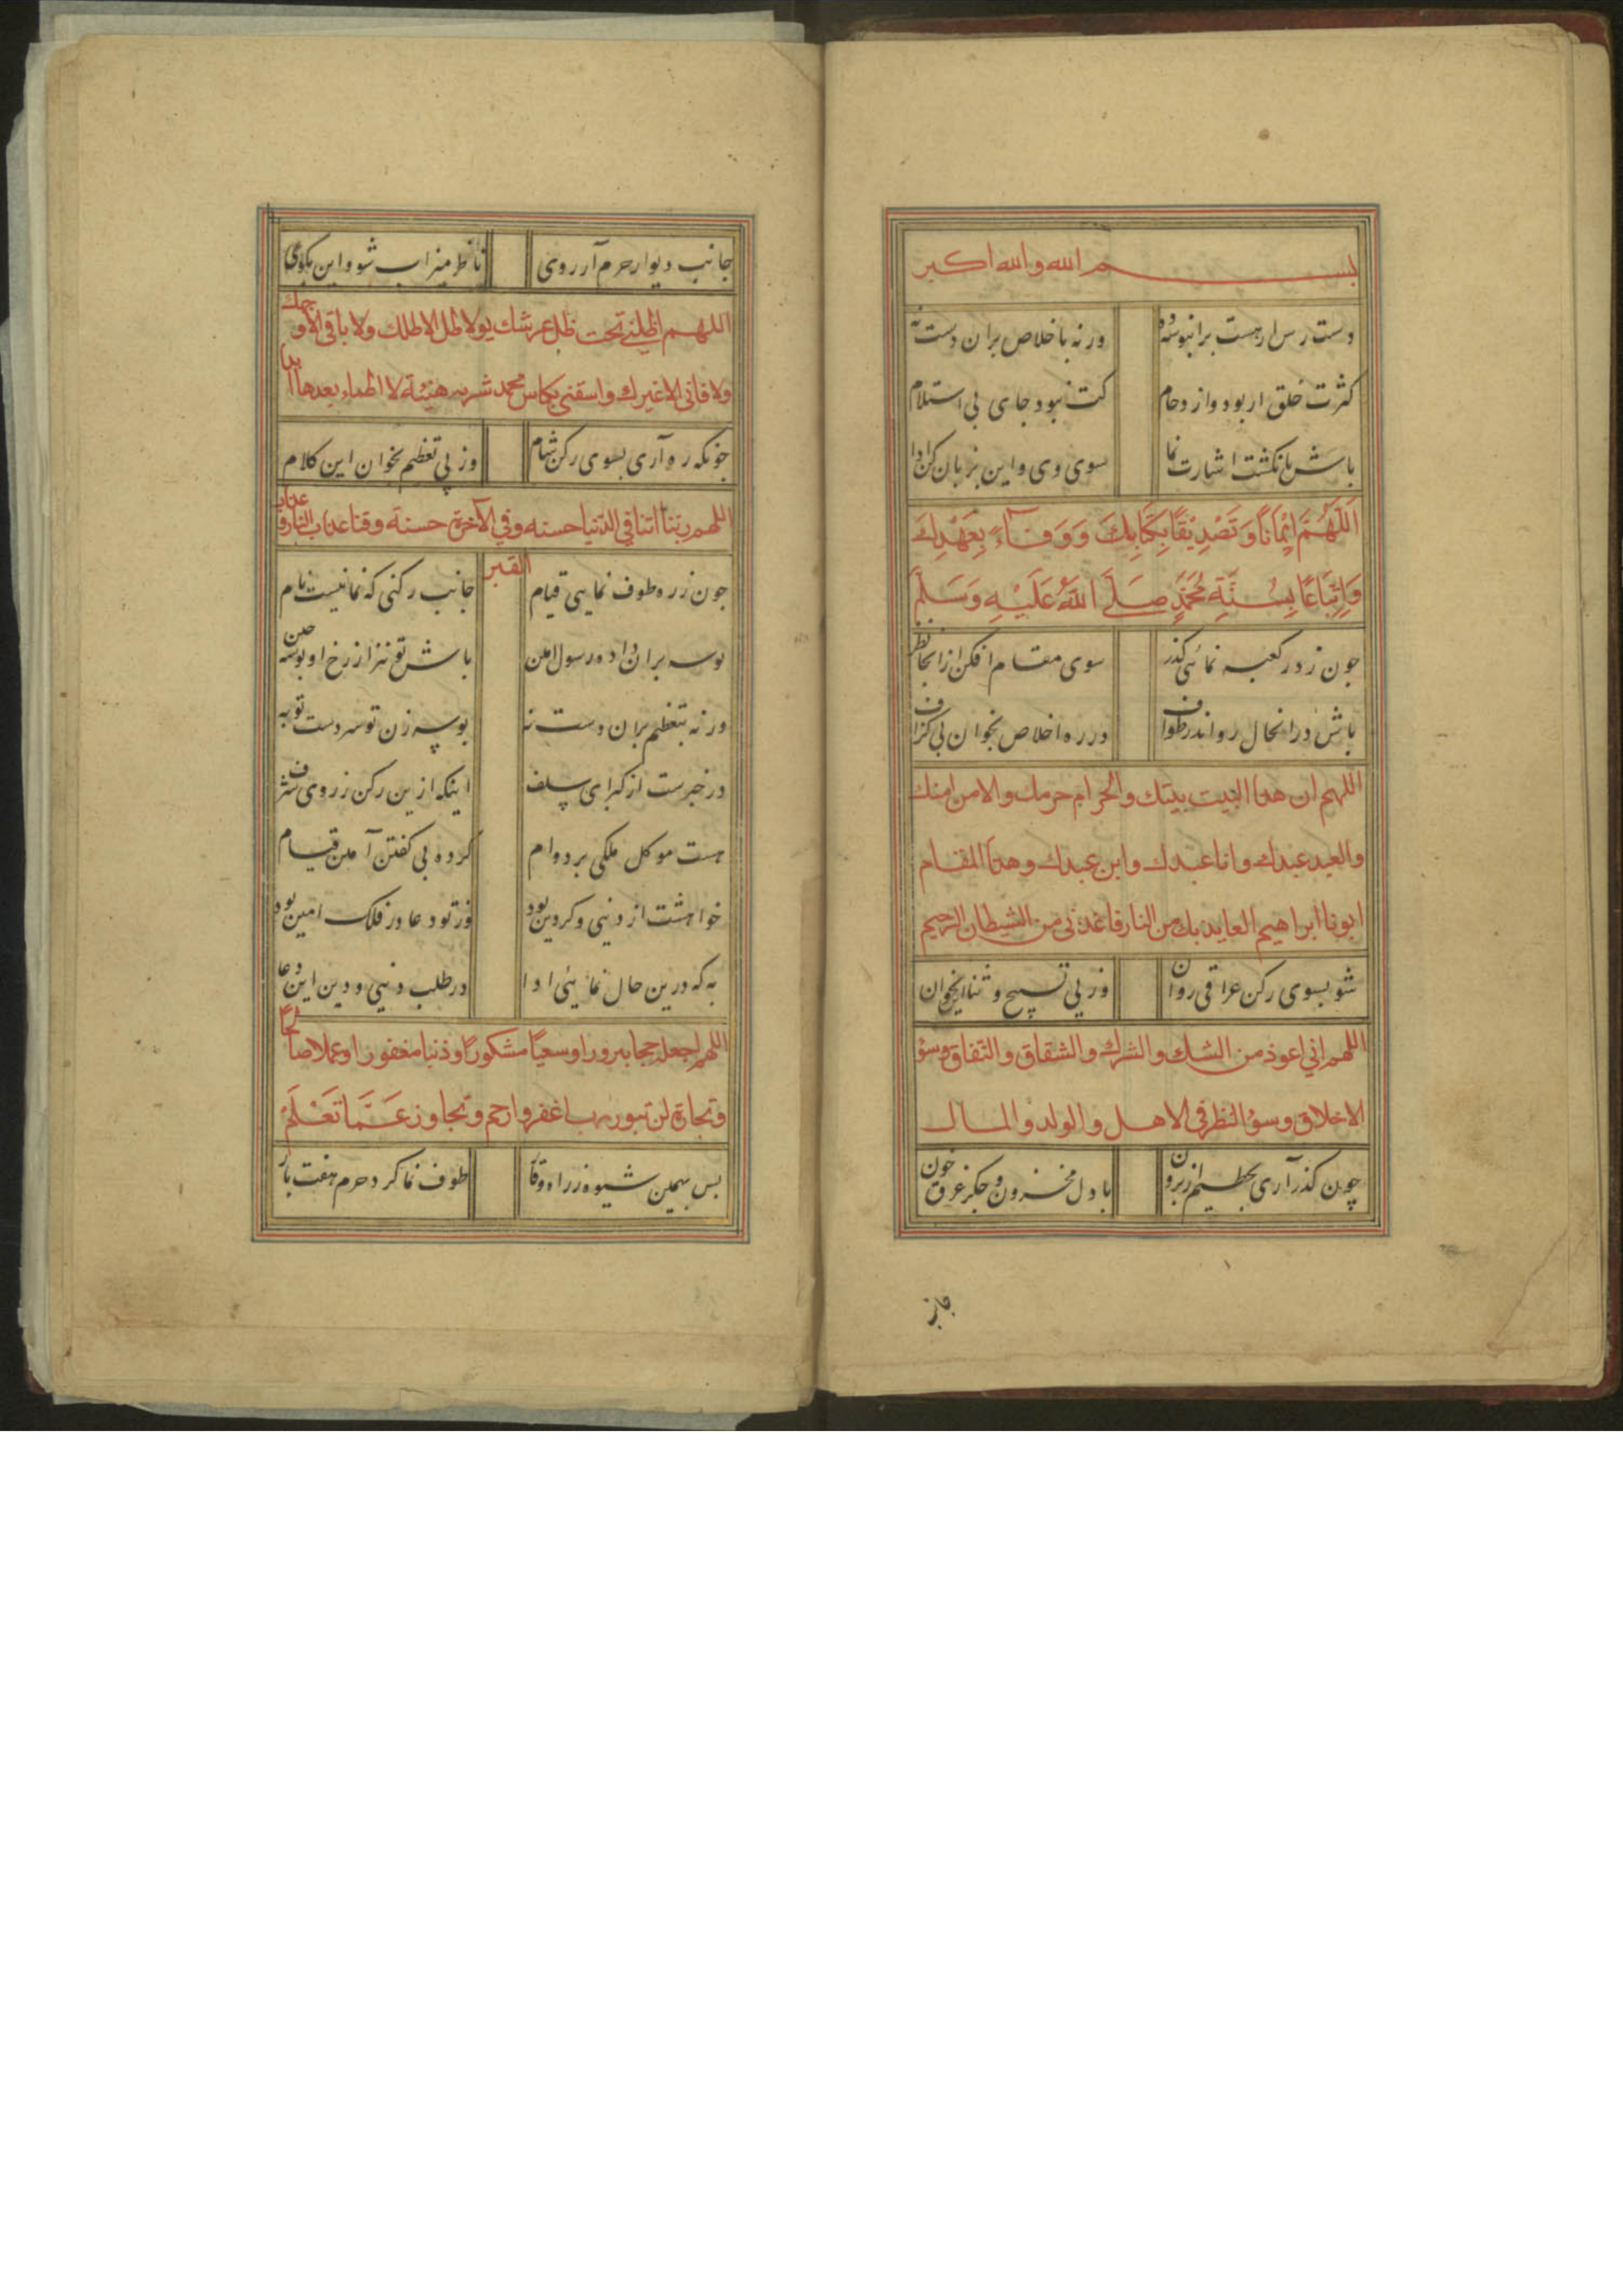 بسم الله والله اكبر
دست رس ار هست برانبوسه ده ورنه باخلاص بران دست نه
كثرت خلق ار بود و ازدحام كت نبود جاى پى استلام
باش بانكشت اشارت نما سوى وى و اين بزبان كن ادا
اَللّهُمَّ اِيْمَانًا وَ تَصْدِيْقًا بِكِتَابِكَ وَ وَفَاءً بِعَهْدِكَ
وَاِتِّبَاعًا بِسُنَّةِ مُحَمَّدٍ صَلَّى اللّهُ عَلَيْهِ وَسَلَّمَ
جون ز در كعبه نمائى كذر سوى مقام افكن ازانجا نظر
باش درانحال رو اندر طواف در ره اخلاص بخوان بى كزاف
اللهم ان هذا البيت بيتك والحرام حرمك والامن امنك
والعبد عبدك وانا عبدك وابن عبدك وهذا المقام
ابونا ابراهيم العايذ بك من النار فاعذنى من الشيطان الرجيم
شو بسوى ركن عراقى روان وز پى تسبيح و ثنا اين بخوان
اللهم انى اعوذ من الشك والشرك والشقاق والنفاق وسؤ
الاخلاق وسؤ النظر فى الاهل والولد والمال
چون كذر آرى بحطيم از برون با دل محزون و جكر غرق خون
جانب
جانب ديوار حرم آر روى ناظر ميزاب شو و اين بكوى
اللهم اظلنى تحت ظل عرشك يو لا ظل الا ظلك ولا باقى الا وجهك
ولا فانى الا غيرك واسقنى بكاس محمد شربه هنيئة لا اظماء بعدها ابدا
جونكه ره آرى بسوى ركن شام وز پى تعظيم بخوان اين كلام
اللهم ربنا اتنا فى الدنيا حسنه وفى الآخرة حسنة وقنا عذاب النار وعذاب
القبر
جون ز ره طوف نمايى قيام جانب ركنى كه نمانيست نام
بوسه بران داده رسول امين باش تو نيز از رخ او بوسه چين
ورنه بتعظيم بران دست نه بوسه زن تو سر دست تو به
در خبرست از كبراى سلف اينكه ازين ركن ز روى شرف
هست موكل ملكى بر دوام كرده پى كفتن آمين قيام
خواهشت از دنيى و كر دين بود از تو دعا وز فلك امين بود
به كه درين حال نمايى ادا در طلب دنيى و دين اين دعا
اللهم اجعله حجا مبرورا وسعيا مشكورا وذنبا مغفورا وعملا صالحا
وتجارة لن تبور رب اغفر وارحم وتجاوز عَمَّا تَعْلَمُ
بس بهمين شيوه ز راه وقار طوف نما كرد حرم هفت بار